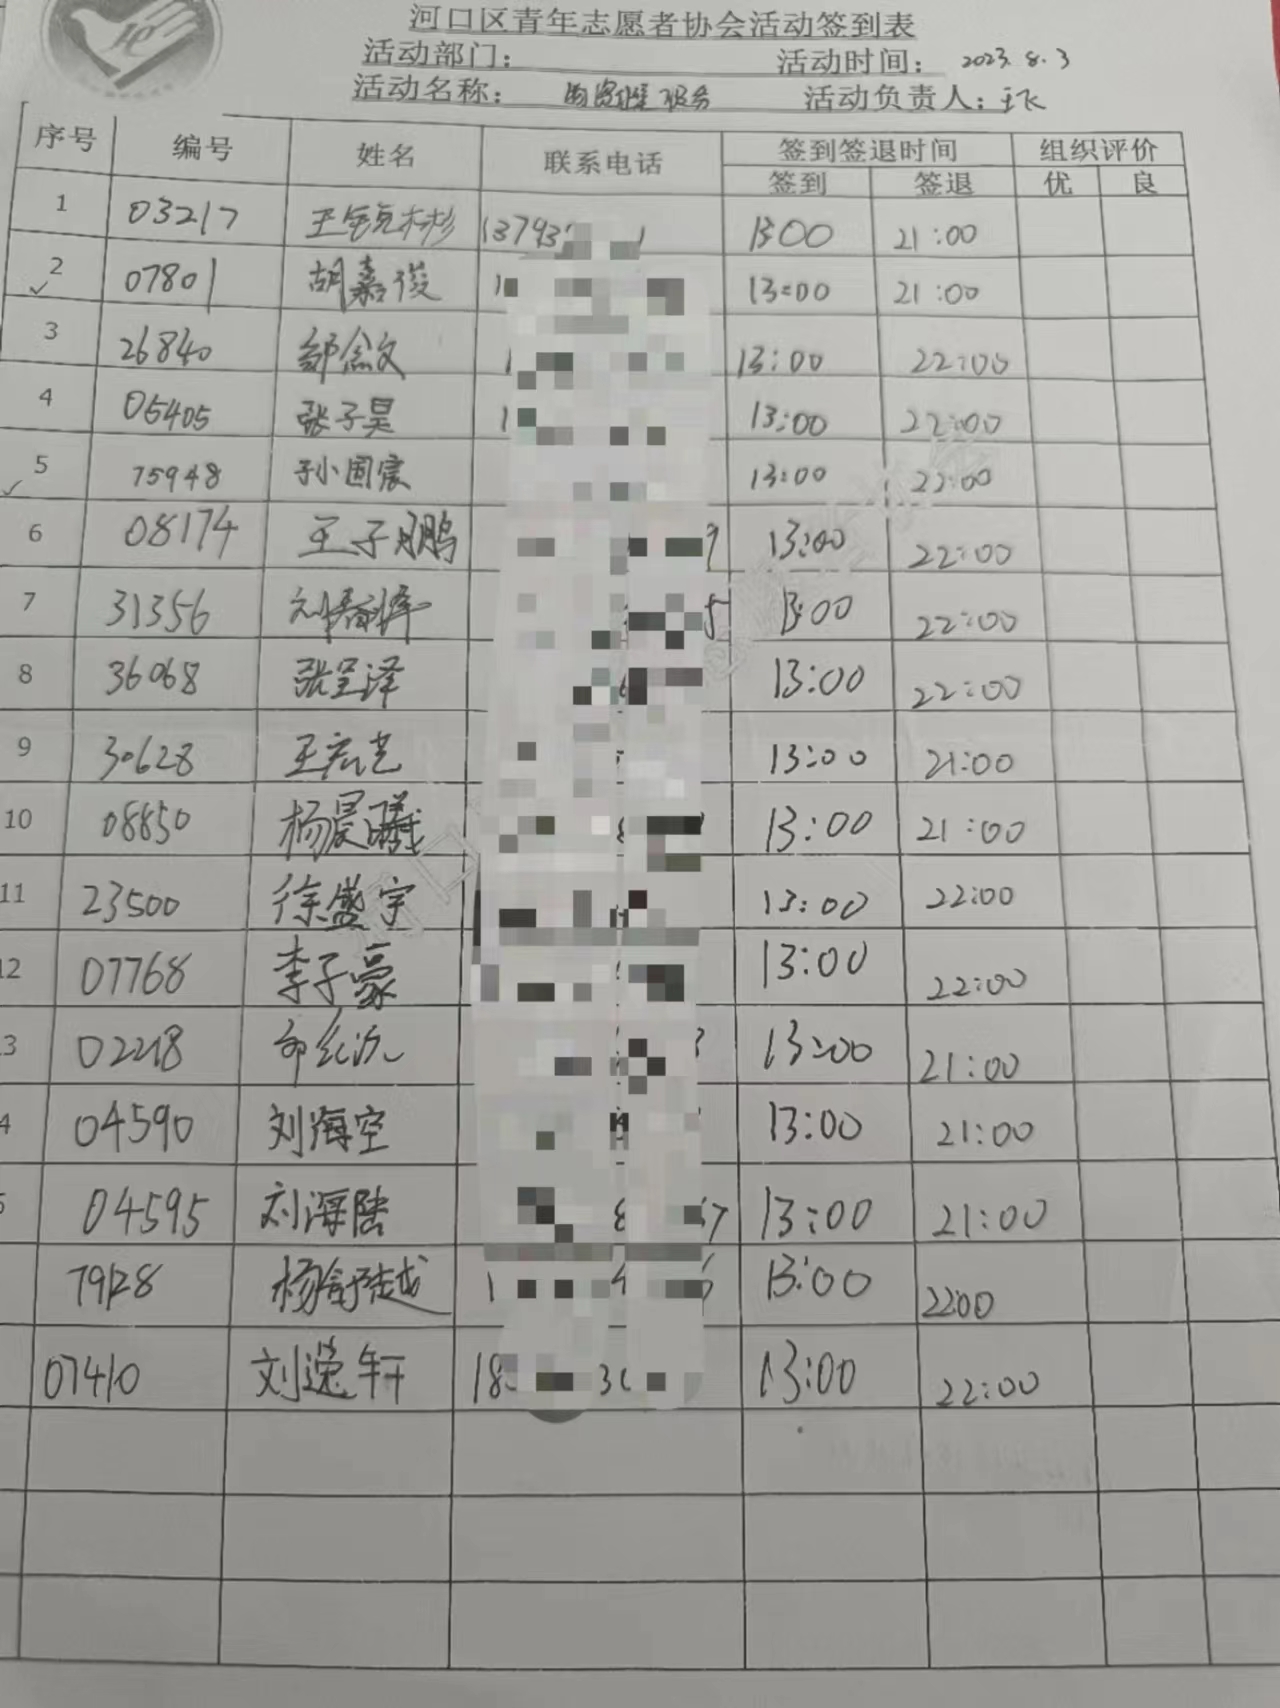 河口区青年志愿者协会活动签到表
活动部门： 活动时间： 2023.8.3
活动名称： 服务 活动负责人：王飞
序号 编号 姓名 联系电话 签到签退时间 组织评价
签到 签退 优 良
1 03217 13793 13:00 21:00
2 07801 胡嘉俊 1 13:00 21:00
3 26840 邹念文 13:00 22:00
4 05405 张子昊 1 13:00 22:00
5 75948 孙国宸 13:00 22:00
6 08174 王子鹏 9 13:00 22:00
7 31356 刘 5 13:00 22:00
8 36068 张呈泽 13:00 22:00
9 30628 王宏艺 13:00 21:00
10 08850 杨晨曦 13:00 21:00
11 23500 徐盛宇 13:00 22:00
12 07768 李子豪 13:00 22:00
3 02218 13:00 21:00
4 04590 刘海空 13:00 21:00
5 04595 刘海陆 8 7 13:00 21:00
79128 杨舒越 1 13:00 22:00
07410 刘逸轩 18 3 13:00 22:00